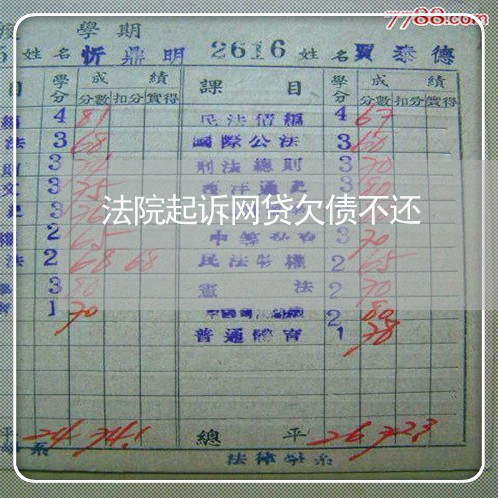 7788.com
學期
姓名 忻鼎明 2616 姓名 賈泰德
目 學分 成績 課目 學分 成績
分數 扣分 實得 分數 扣分 實得
4 81 民法債編 4 67
法 3 68 國際公法 3 60
3 刑法總則 3 70
3 75 西洋通史 3 80
法院起诉网贷欠债不还
2 65 3 70
法 2 68 68 民法物權 2 65
3 80 憲法 2 70
1 70 2 80
普通體育 1 78
平 24 74.1 總平 26 72.3
系 法律學系